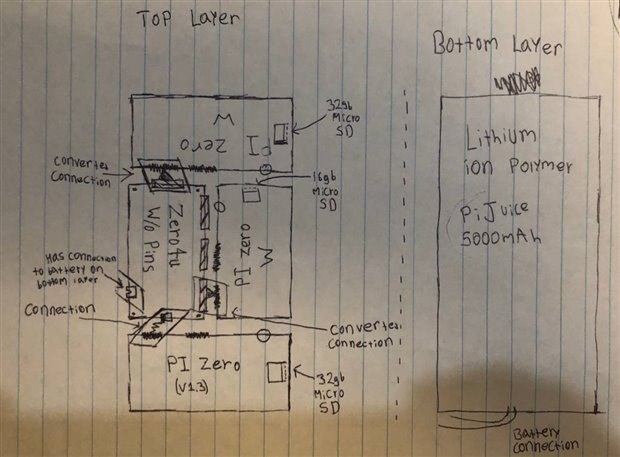 Top Layer
Bottom Layer
W
Zero
PI
32gb
Micro
SD
Converter
Connection
16gb
Micro
SD
Zero4u
W/o Pins
PI Zero
W
Has connection
to battery on
bottom layer
Connection
Converter
Connection
PI Zero
(V1.3)
32gb
Micro
SD
Lithium
ion Polymer
Pi Juice
5000mAh
Battery
Connection